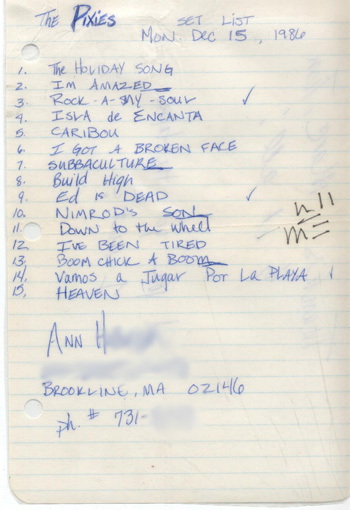 The PIXIES SET LIST
MON. DEC 15, 1986
1. The HOLIDAY SONG
2. I'M AMAZED
3. ROCK-A-MY-SOUL ✓
4. ISLA de ENCANTA
5. CARIBOU
6. I GOT A BROKEN FACE
7. SUBBACULTURE
8. Build High
9. Ed is DEAD ✓
10. NIMROD'S SON
11. Down to the Wheel
12. I'VE BEEN TIRED
13. BOOM CHICK A BOOM
14. Vamos a Jugar Pot La PLAYA
15. HEAVEN
ANN H
BROOKLINE, MA 02146
ph. # 731-